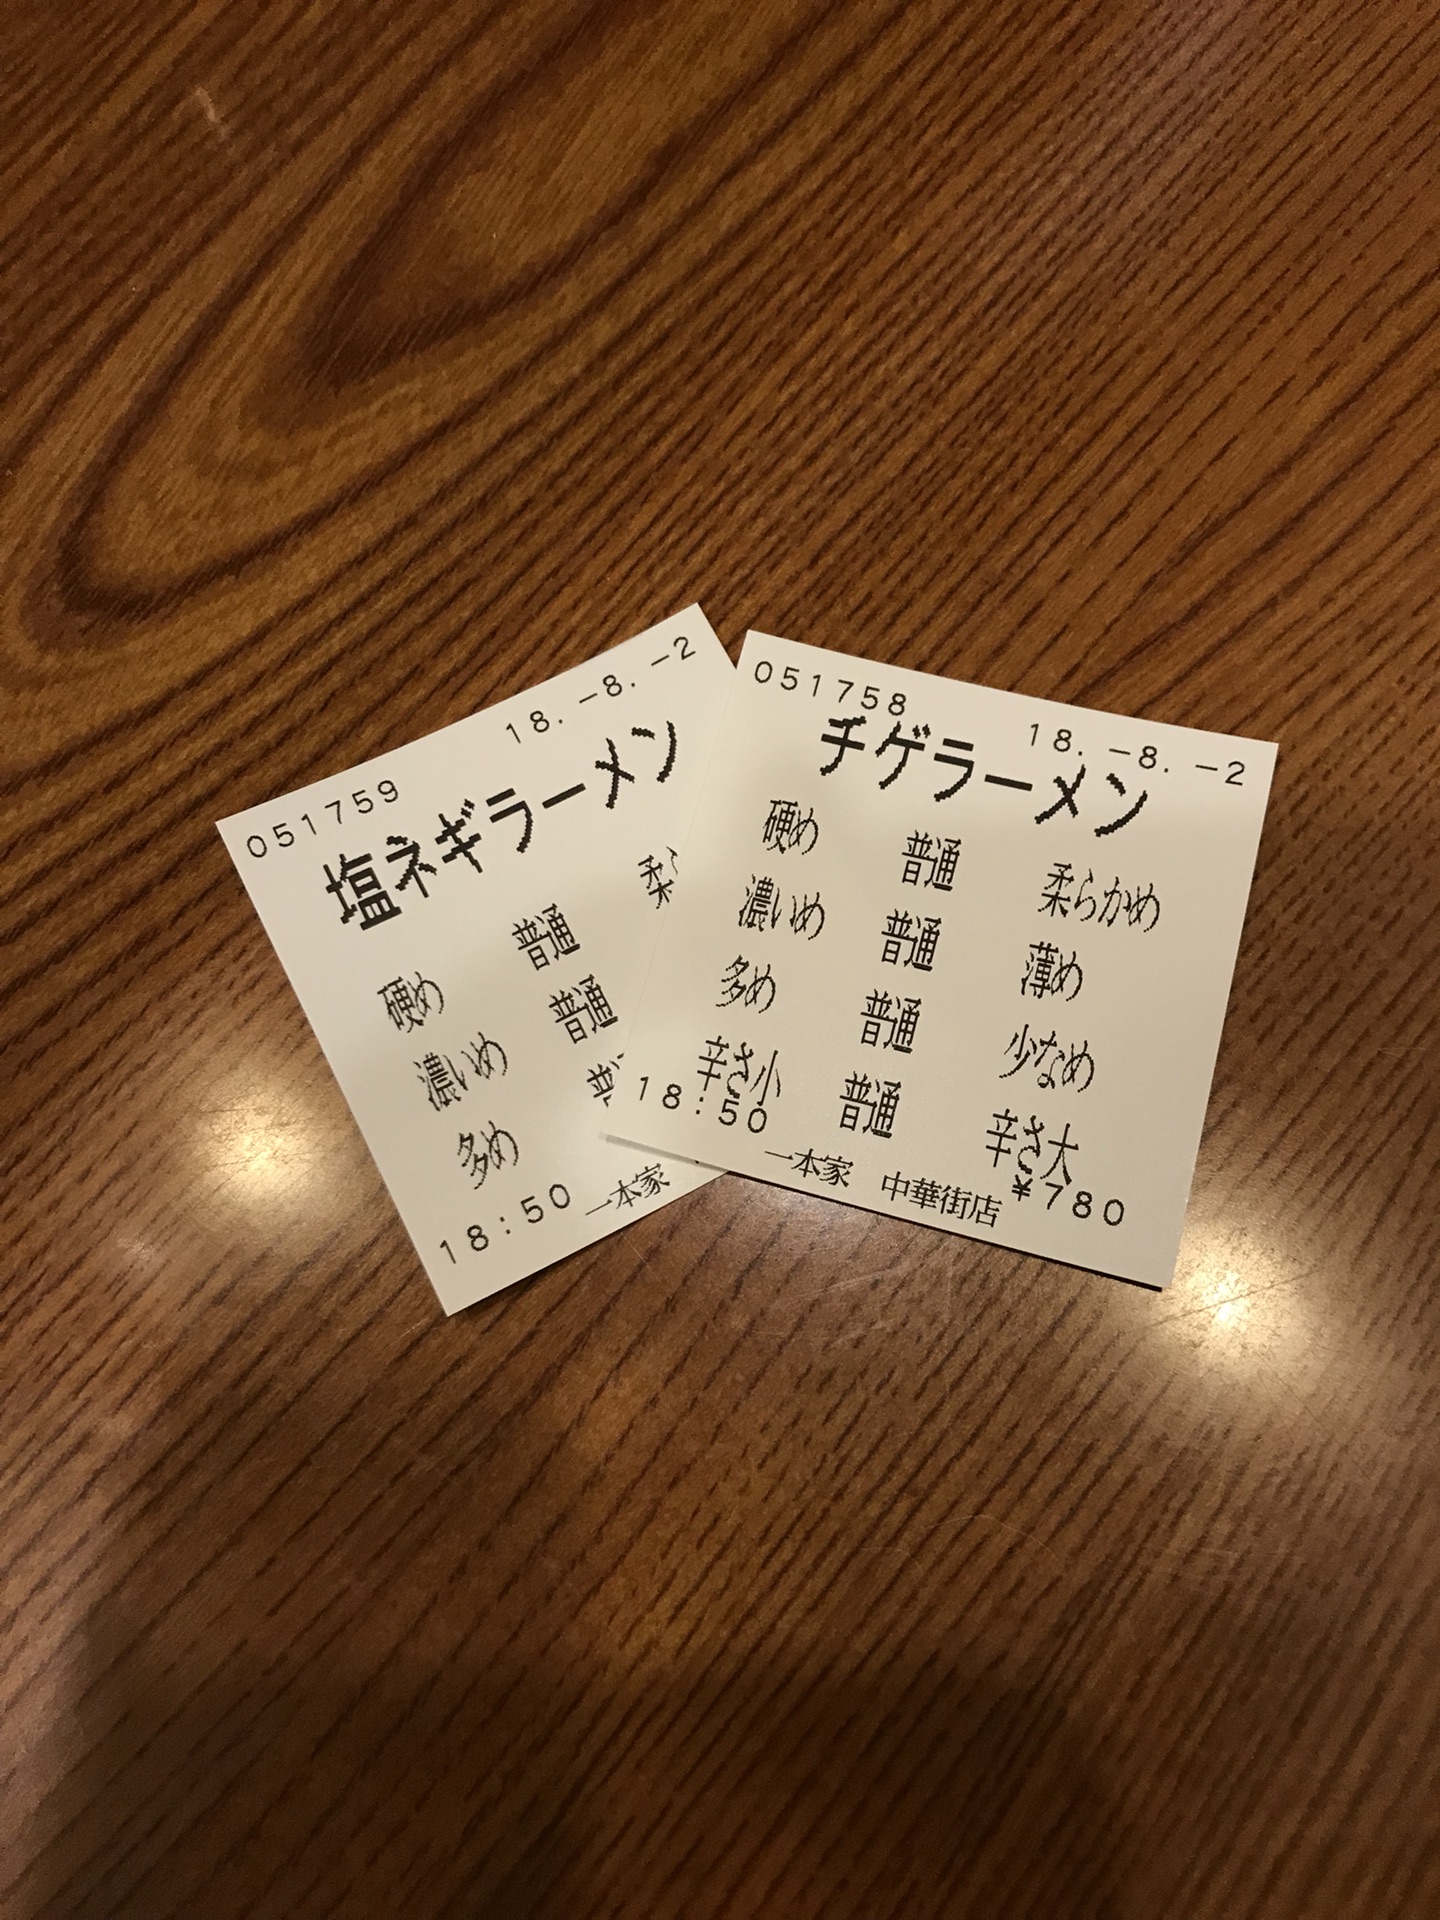 051759 18.-8.-2
塩ネギラーメン
硬め 普通 柔
濃いめ 普通
多め
18:50 一本家
051758 18.-8.-2
チゲラーメン
硬め 普通 柔らかめ
濃いめ 普通 薄め
多め 普通 少なめ
辛さ小 普通 辛さ大
18:50 一本家 中華街店 ¥780